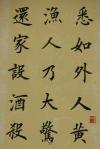 悉如外人黃
漁人乃大驚
還家設酒殺